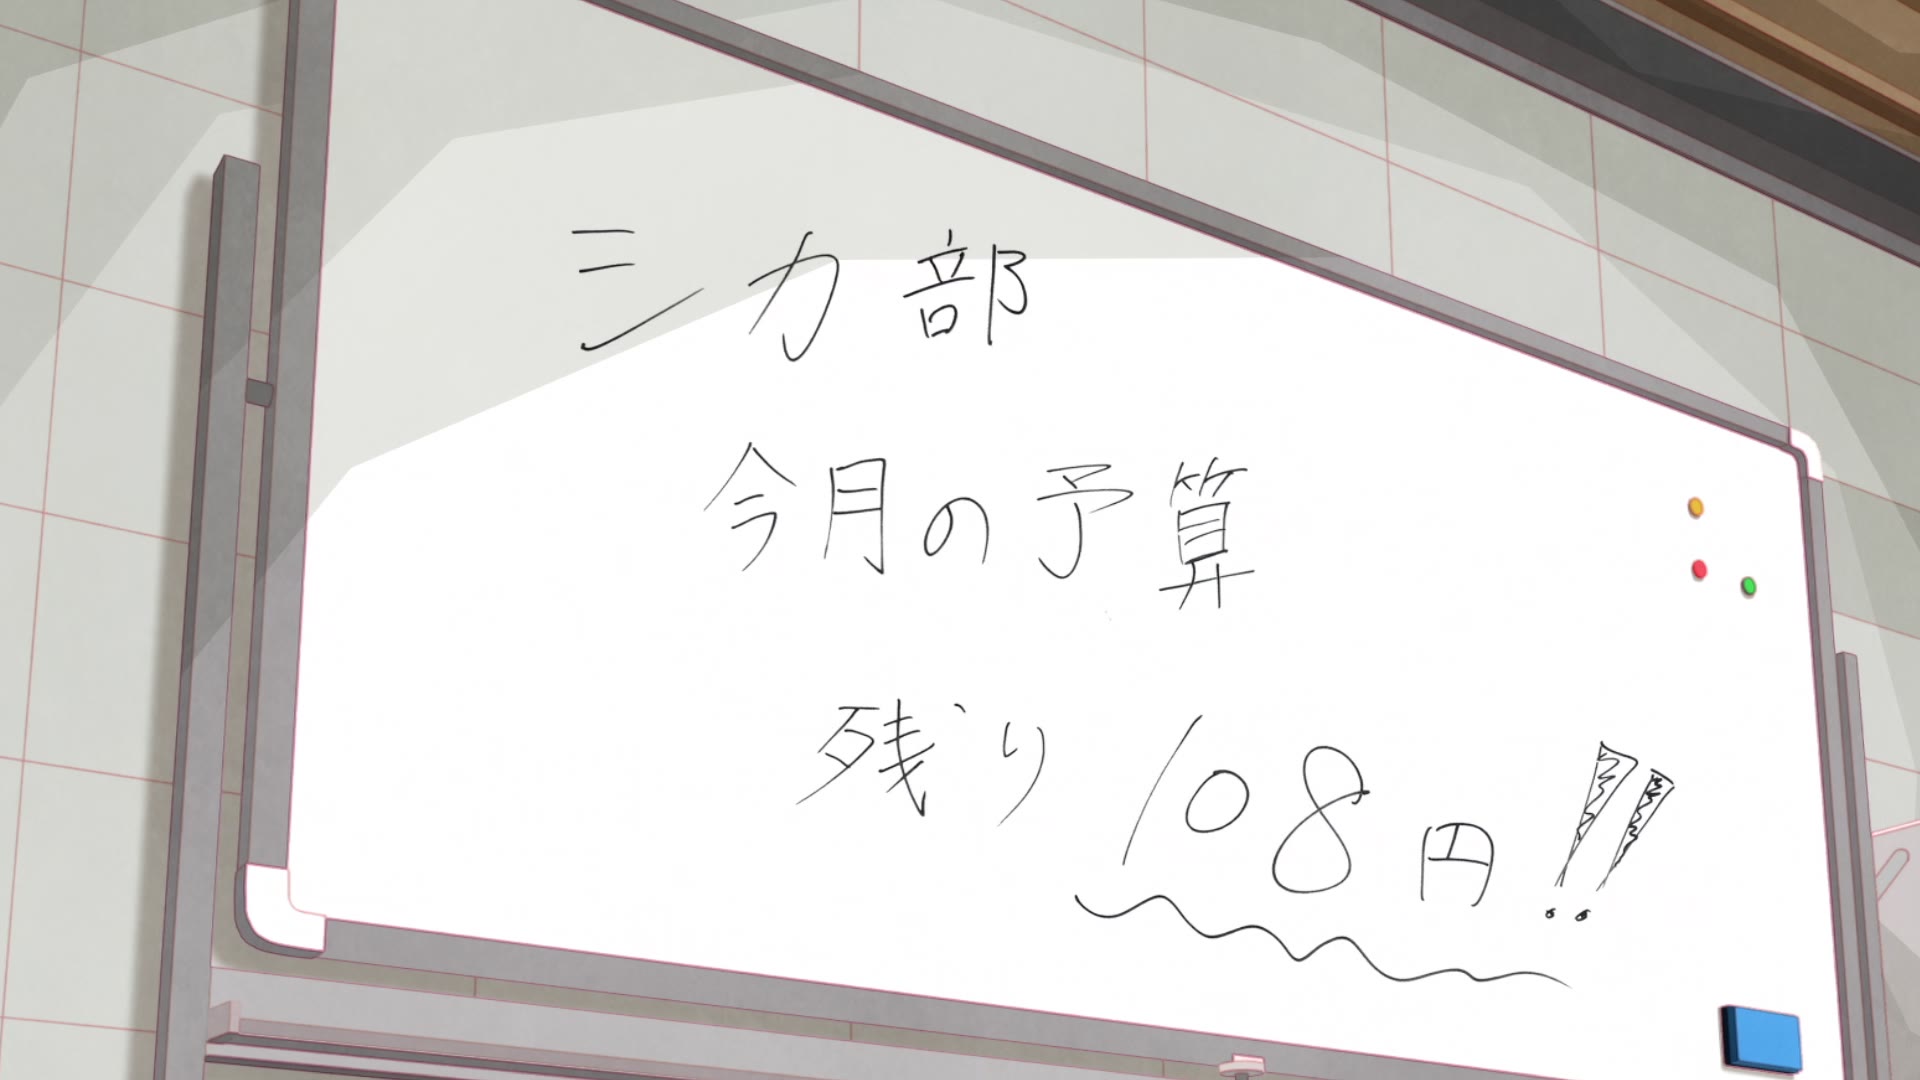 シカ部
今月の予算
残り 108円!!